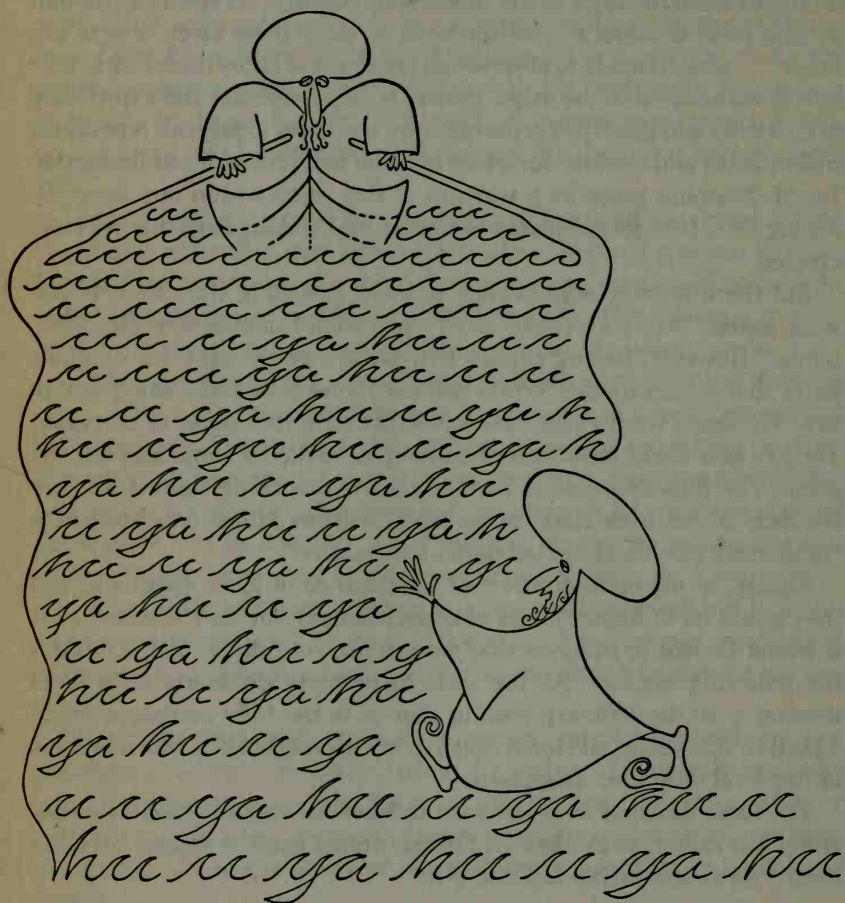 u ya hu u
u ya hu u u
u u ya hu u ya h
hu u yu hu u ya h
ya hu u ya hu
u ya hu u ya h
hu u ya hu
ya hu u ya
u ya hu u y
hu u ya hu
ya hu u ya
u u ya hu u ya hu u
hu u ya hu u ya hu